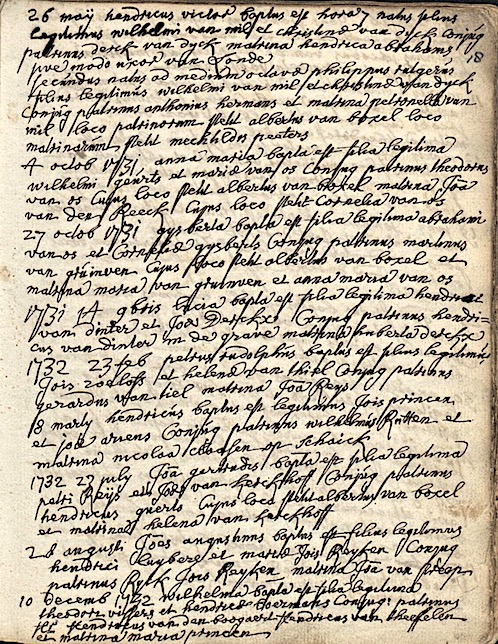 26 maÿ hendricus victor baptus est hora 7 natus filius
Legitimus wilhelmi van mil et christinæ van dyck conjug
patrinus derck van dyck matrina hendrica abrahams
18
secundus natus ad medium octavæ philippus rutgerus
filius legitimus wilhelmi van mil et christinæ van dyck
Conjug patrinus anthonius hermans et matrina petronella van
mil loco patrinorum stetit albertus van boxel loco
matrinarum stetit mechtildis peeters
4 octob 1731 anna maria bapta est filia legitima
wilhelmi geurts et mariæ van os Conjug patrinus theodorus
van os Cujus loco stetit albertus van boxel matrina Joa
van den Reeck Cujus loco stetit Cornelia van os
27 octob 1731 gysberta bapta est filia legitima abrahami
van os et Corneliæ gysberts Conjug patrinus martinus
van gruinven Cujus loco stetit albertus van boxel et
matrina maria van gruinven et anna maria van os
1731 14 9bris lucia bapta est filia legitima
van dinter et Joæ Derckx Conjug patrinus hendri=
cus van dinter in de grave matrina huberta derckx
1732 23 feb petrus rudolphus baptus est filius legitimus
Jois roeloffs et helenæ van thiel Conjug patrinus
gerardus van tiel matrina Joa Reys
18 marty hendricus baptus est legitimus Jois princen
et Joæ ariens Conjug patrinus wilhelmus Rutten et
matrina nicolaa claassen op schaick
1732 23 july Joa gertrudis bapta est filia legitima
petri Reijs et Joæ van kerckhoff Conjug patrinus
hendricus guerts Cujus loco stetit albertus van boxel
et matrina helena van kerckhoff
28 augusti Joes augustinus baptus est filius legitimus
hendrici kuyberc et mariæ Jois Reyken Conjug
patrinus Ryck Jois Reyken matrina Joa van
10 decemb 1732 wilhelma bapta est filia legitima
theodori vissers et hendricæ Coermans Conjug: patrinus
hendricus van den boogaert hendricus van theffelen
et matrina maria princen